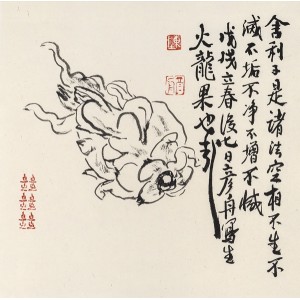 舍利子是諸法空相不生不
滅不垢不净不增不減
戊戌立春後七日彦舟寫生
火龍果也